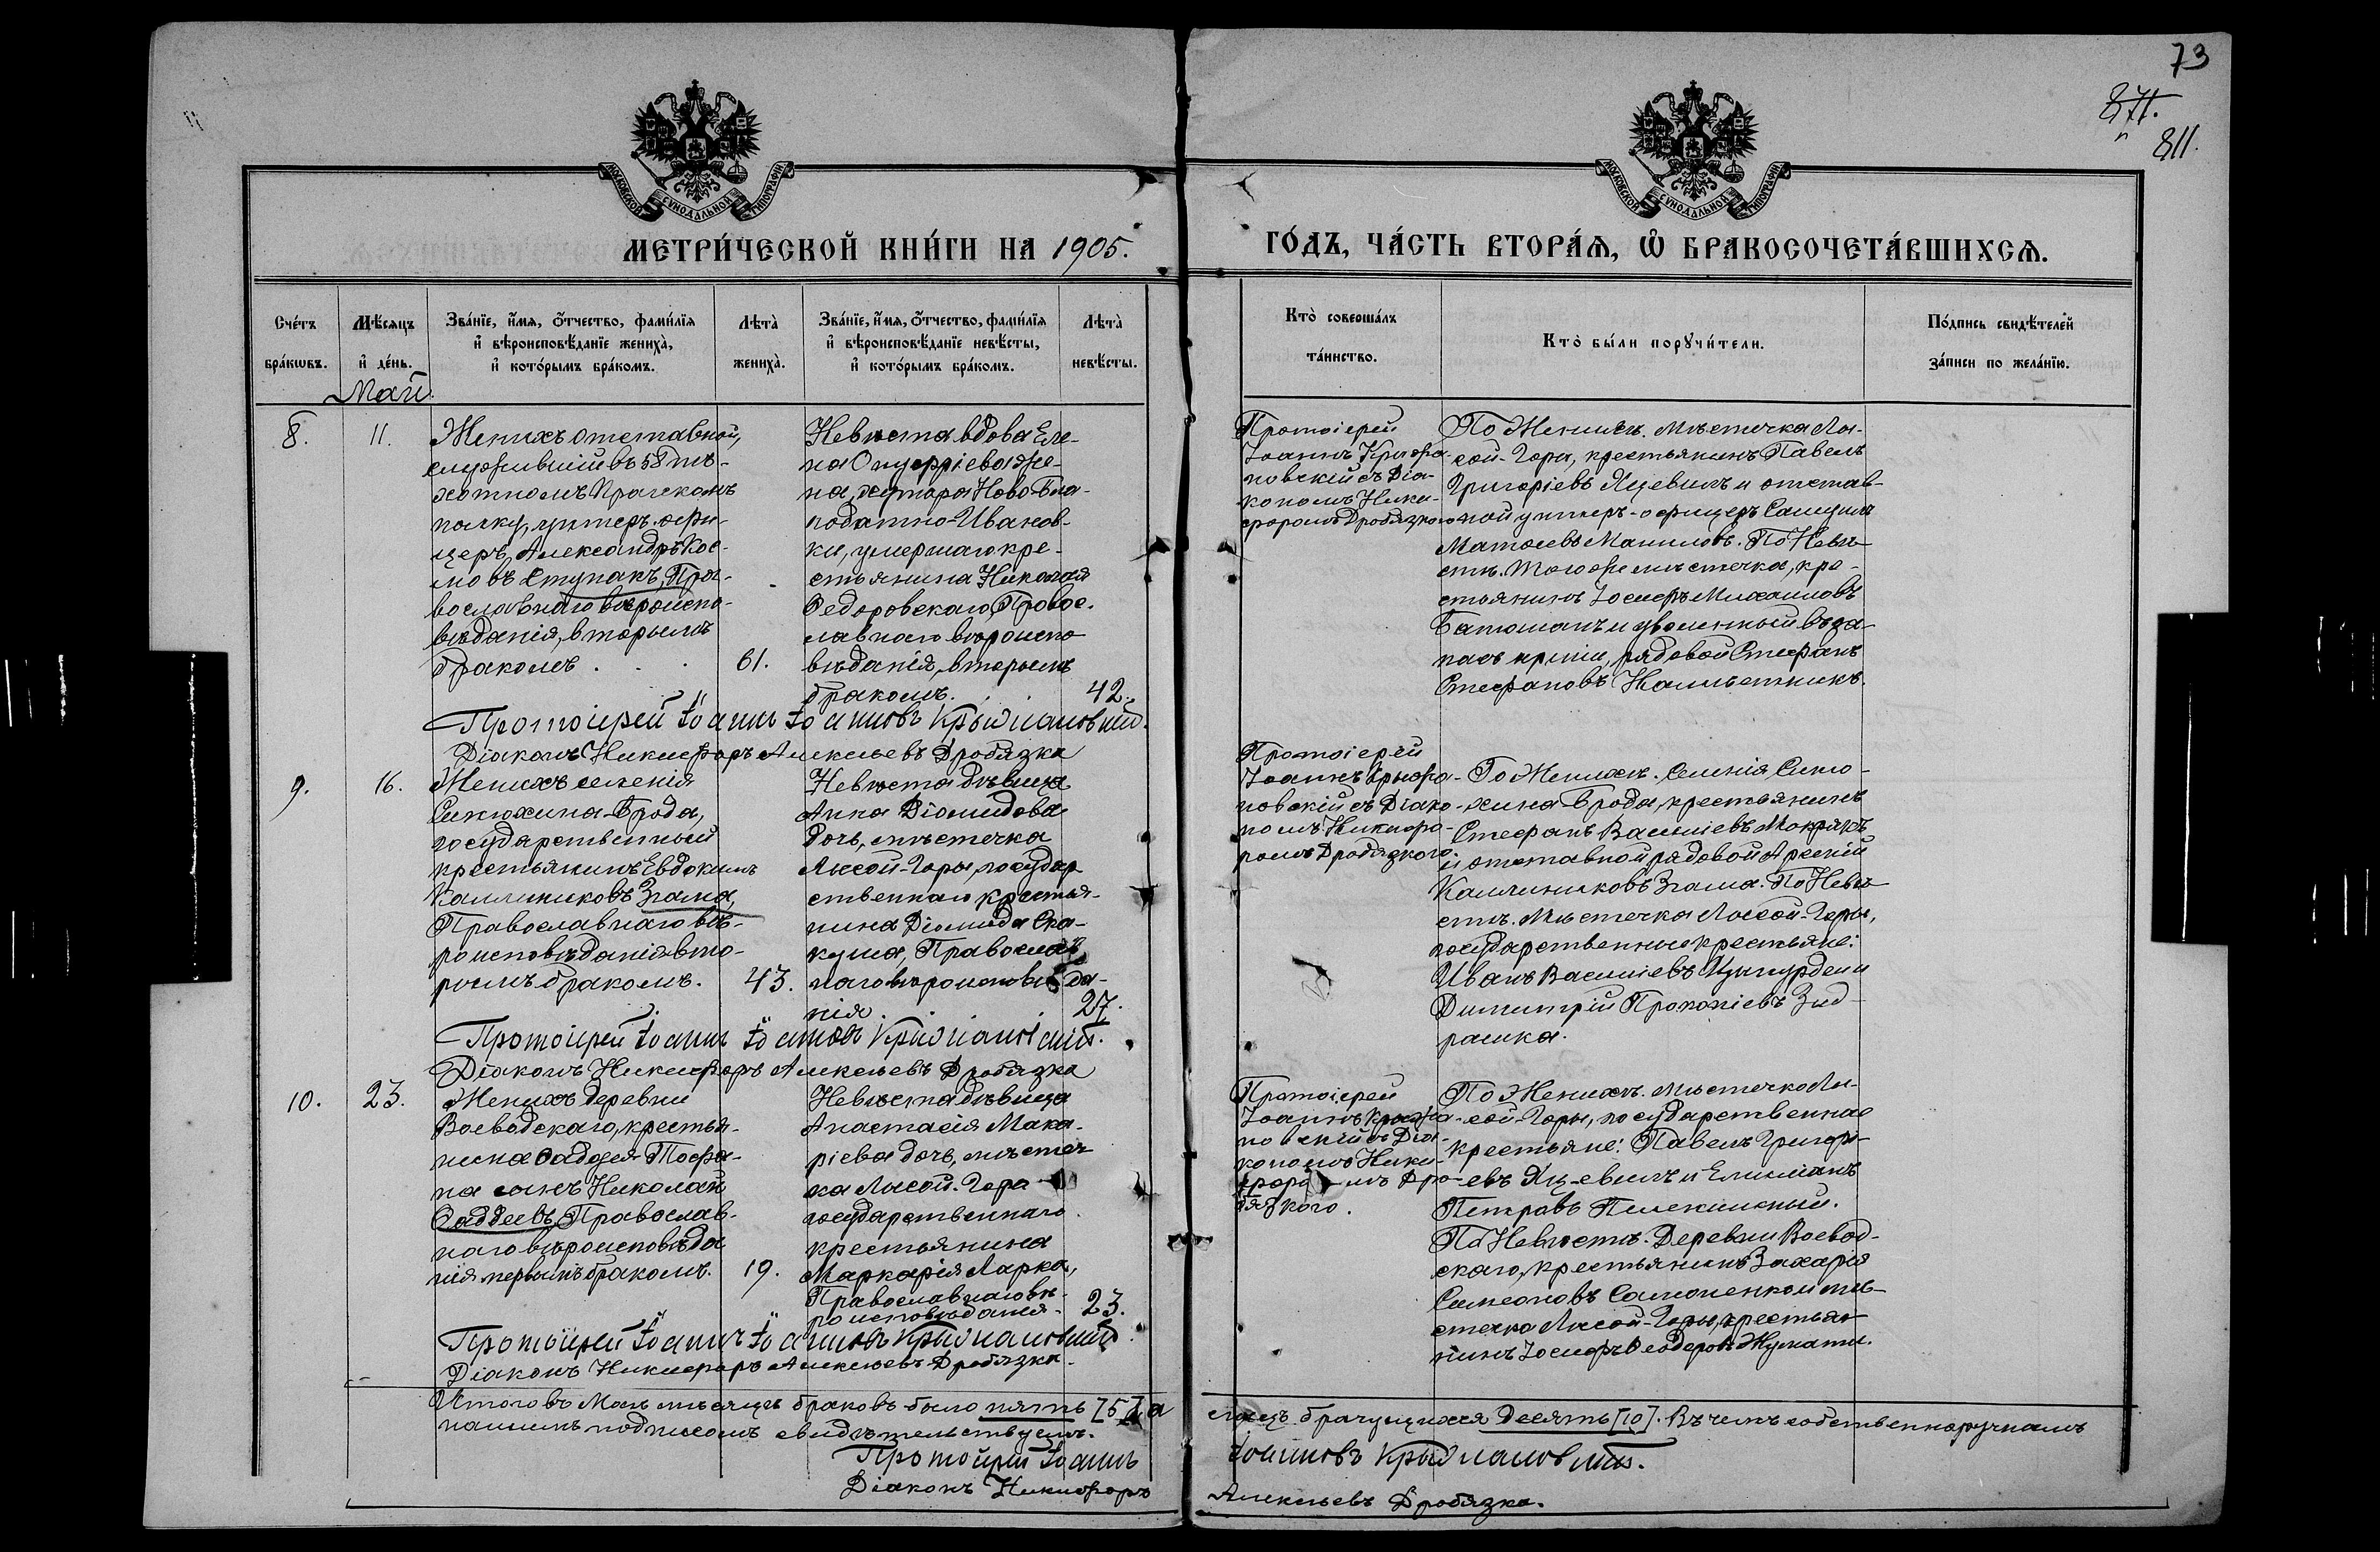 73
871.
811.
МОСКОВСКОЙ СѴНОДАЛЬНОЙ ТИПОГРАФІИ
МОСКОВСКОЙ СѴНОДАЛЬНОЙ ТИПОГРАФІИ
МЕТРИ́ЧЕСКОЙ КНИ́ГИ НА 1905.
ГО́ДЪ, ЧА́СТЬ ВТОРА́Ѧ, Ѡ҆ БРАКОСОЧЕТА́ВШИХСѦ.
Сче́тъ бра́кѡвъ.
Мѣ́сяцъ и҆ де́нь.
Зва́нїе, и҆́мѧ, ѻ҆́тчество, фами́лїѧ
и҆ вѣроисповѣ́данїе жениха̀,
и҆ кото́рымъ бра́комъ.
Лѣта̀ жениха̀.
Зва́нїе, и҆́мѧ, ѻ҆́тчество, фами́лїѧ
и҆ вѣроисповѣ́данїе невѣ́сты,
и҆ кото́рымъ бра́комъ.
Лѣта̀ невѣ́сты.
Кто̀ соверша́лъ та́инство.
Кто̀ бы́ли порꙋчи́тели.
По́дпись свидѣ́телей за́писи по жела́нїю.
Май
8.
11.
Женихъ отставной,
служившій въ 58 пѣ-
хотномъ Прагскомъ
полку, унтеръ-офи-
церъ, Александръ Кос-
мовъ Ступакъ, Пра-
вославнаго вѣроиспо-
вѣданія, вторымъ
бракомъ
61.
Невѣста вдова Еле-
на Онуфріева же-
на, хутора Ново-Бла-
годатно-Иванов-
ки, умершаго кре-
стьянина Николая
Ѳедоровскаго, Правос-
лавнаго вѣроиспо
вѣданія, вторымъ
бракомъ.
42.
Протоіерей
Іоаннъ Крыжа-
новскій съ Діа-
кономъ Ники-
форомъ Дробязкою
По Женихѣ. Мѣстечка Лы-
сой-Горы, крестьянинъ Павелъ
Григоріевъ Яцевилъ и отстав-
ной унтеръ-офицеръ Самуилъ
По Невѣ-
стѣ. Того же мѣстечка, кре-
стьянинъ Іосифъ Михаиловъ
и уволенный въ за-
пасъ арміи, рядовой Стефанъ
Стефановъ Намѣстникъ.
Протоіерей Іоаннъ Іоанновъ Крыжановскій.
Діаконъ Никифоръ Алексѣевъ Дробязка
9.
16.
Женихъ селенія
Синюхина-Брода,
государственный
крестьянинъ Евдокимъ
Каллиниковъ Згама,
Православнаго вѣ-
роисповѣданія вто-
рымъ бракомъ.
43.
Невѣста дѣвица
Анна Діомидова
дочь, мѣстечка
Лысой-Горы, государ
ственнаго крестья-
нина Діомида Ска-
куна, Православ
наго вѣроисповѣда-
нія.
27.
Протоіерей
Іоаннъ Крыжа-
новскій съ Діако-
номъ Никифо-
ромъ Дробязкою.
По Женихѣ. Селенія Синю-
хина Брода, крестьянинъ
Стефанъ Василіевъ Мокрякъ
и отставной рядовой Арсеній
Каллиниковъ Згама. По Невѣ
стѣ. Мѣстечка Лысой-Горы,
государственные крестьяне:
Иванъ Василіевъ
Димитрій Прокопіевъ
Протоіерей Іоаннъ Іоанновъ Крыжановскій.
Діаконъ Никифоръ Алексѣевъ Дробязка
10.
23.
Женихъ деревни
Воеводскаго, крестья-
нина Ѳаддея Тофа-
на сынъ Николай
Ѳаддеевъ, Православ-
наго вѣроисповѣда
нія первымъ бракомъ.
19.
Невѣста дѣвица
Анастасія Мака-
ріева дочь, мѣстеч
ка Лысой-Гора
государственнаго
крестьянина
Маркарія Ларка,
Православнаго вѣ-
роисповѣданія.
23.
Протоіерей
Іоаннъ Крыжа-
новскій съ Діа-
кономъ Ники-
форомъ Дро-
бязкою.
По Женихѣ. Мѣстечко Лы-
сой-Горы, государственные
крестьяне: Павелъ Григорі-
евъ Яцевилъ и
Петровъ
По Невѣстѣ. Деревни Воевод-
скаго, крестьянинъ Захарія
Симеоновъ Самоненко и мѣ-
стечка Лысой-Горы, крестья-
нинъ Іосифъ Ѳеодоровъ
Протоіерей Іоаннъ Іоанновъ Крыжановскій
Діаконъ Никифоръ Алексѣевъ Дробязка.
Итого въ Маѣ мѣсяцѣ браковъ было пять [5], а
лицъ брачущихся десять [10]. Въ чемъ собственноручнымъ
нашимъ подписомъ свидѣтельствуемъ.
Протоіерей Іоаннъ
Іоанновъ Крыжановскій.
Діаконъ Никифоръ
Алексѣевъ Дробязка.